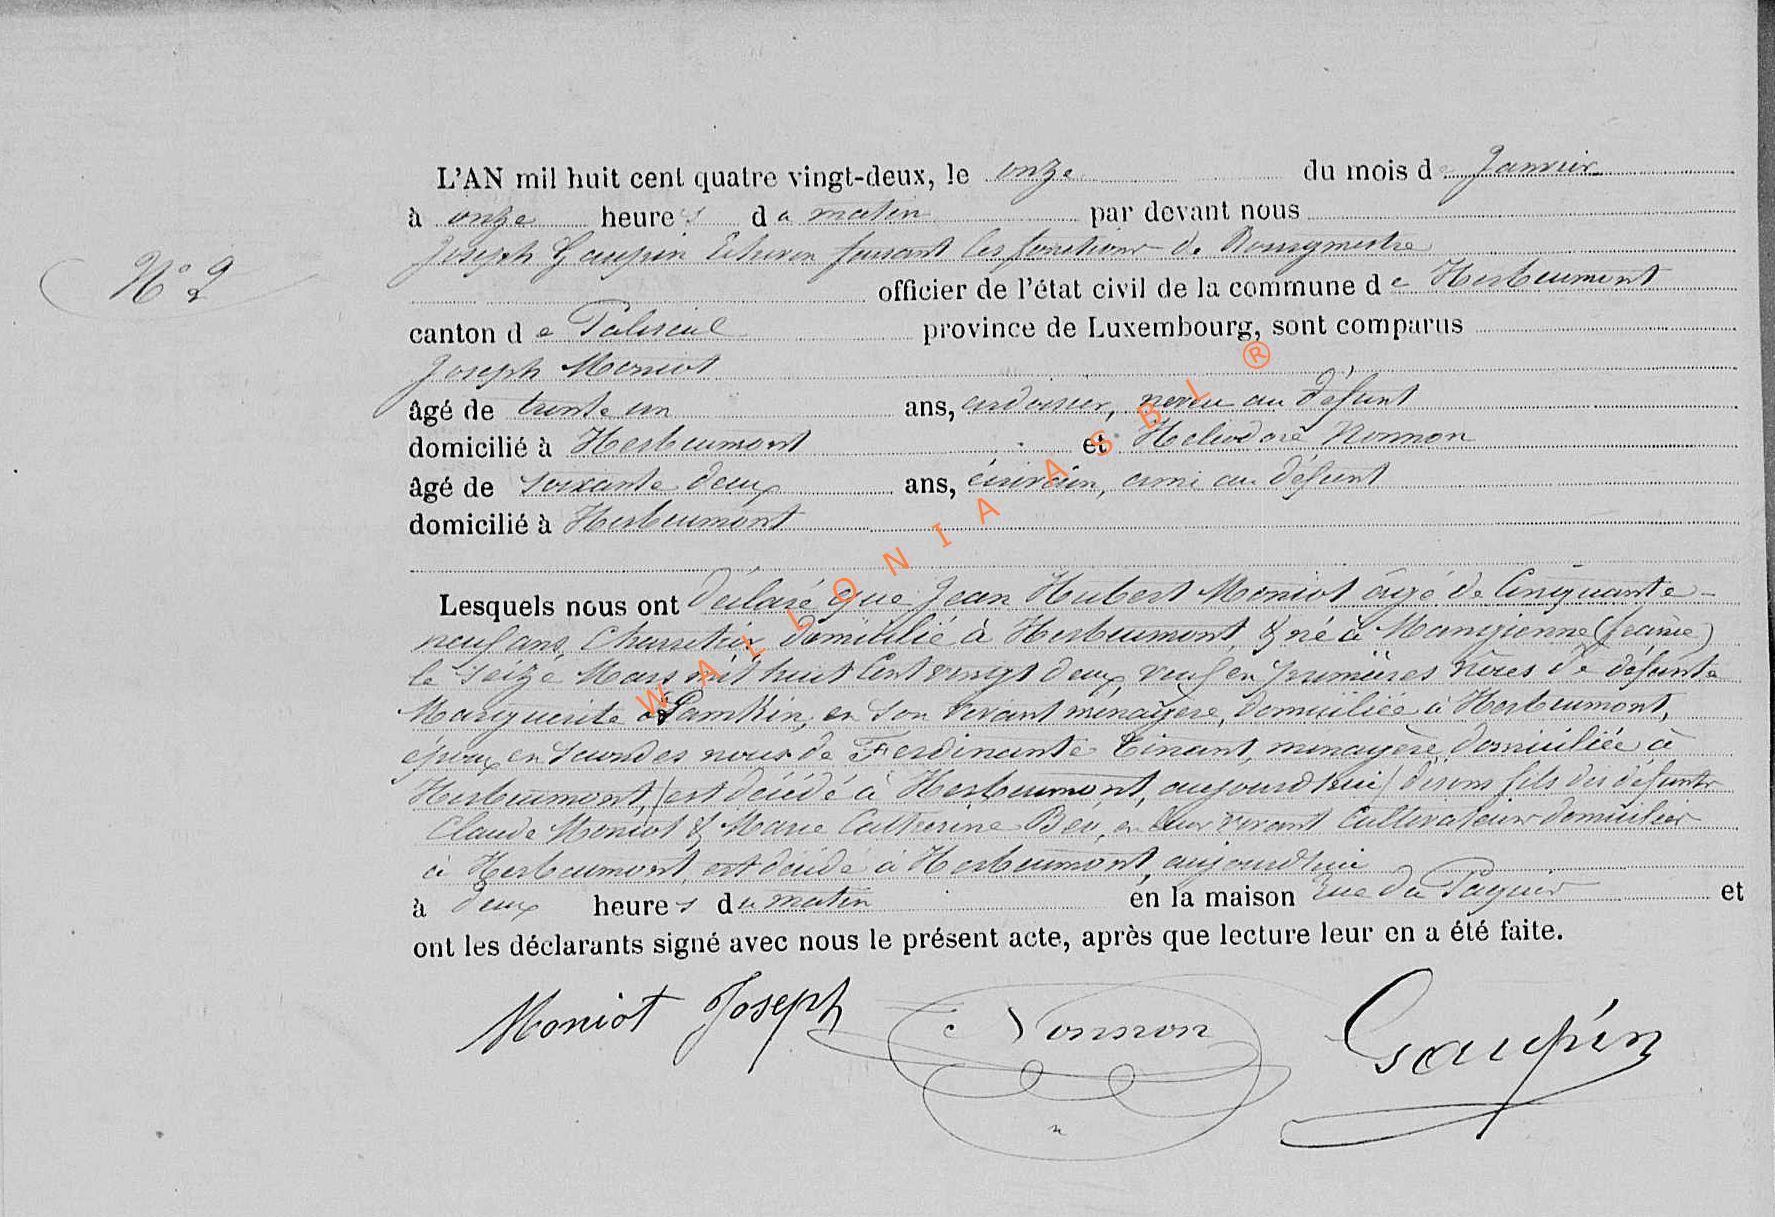 L'AN mil huit cent quatre vingt-deux, le onze du mois de Janvier
à onze heures du matin par devant nous
Joseph Gaupin Echevin faisant les fonctions de Bourgmestre
N° 2
officier de l'état civil de la commune de Herbeumont
canton de Paliseul province de Luxembourg, sont comparus
Joseph Moniot
âgé de trente un ans, ardoisier, neveu au défunt
domicilié à Herbeumont et Heliodore Nonnon
âgé de soixante deux ans, écrivain, ami au défunt
domicilié à Herbeumont
Lesquels nous ont déclaré que Jean Hubert Moniot âgé de Cinquante-
neuf ans, Charretier domicilié à Herbeumont, & né à Mangienne (france)
le seize Mars mil huit Cent vingt deux, veuf en premières nôces de défunte
Marguerite Lamkin, en son vivant menagère, domiciliée à Herbeumont,
époux en secondes noces de Ferdinante Tinant, menagère domiciliée à
Herbeumont, (est décédé à Herbeumont, aujourd'hui) disons fils des défunts
Claude Moniot & Marie Catherine en leur vivant Cultivateurs domiciliés
à Herbeumont, est décédé à Herbeumont, aujourd'hui
à deux heures du matin en la maison rue du Paquis et
ont les déclarants signé avec nous le présent acte, après que lecture leur en a été faite.
Moniot Joseph Nonnon Gaupin
WALLONIA ASBL ®